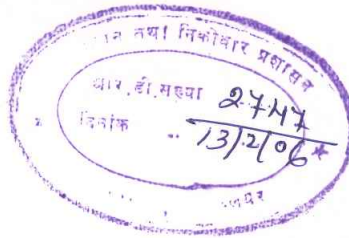 तथा निकोबार प्रशासन
आर.डी.सख्या 2747
दिनांक .. 13/2/06